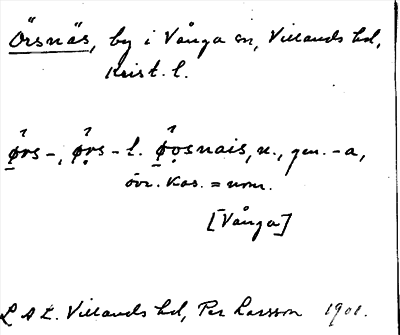 Örsnäs, by i Vånga sn, Villands hd,
Krist. l.
ø̂rs-, ø̂rs- l. ø̂rsnais, n., gen. -a,
övr. kas. = nom.
[Vånga]
LAL. Villands hd, Per Larsson 1901.